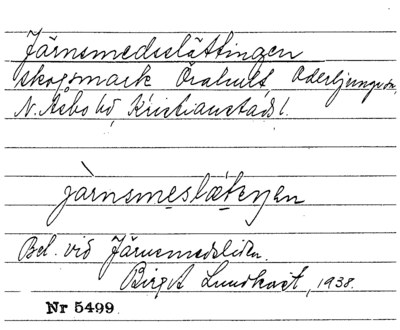 Järnsmedslättingen
skogsmark Öralult, Oderljunga sn,
N. Åsbo hd, Kristianstads l.
jàrnsmeslǽteŋen
Bel. vid Järnsmedsliden.
Birgit Lundkvist, 1938.
Nr 5499